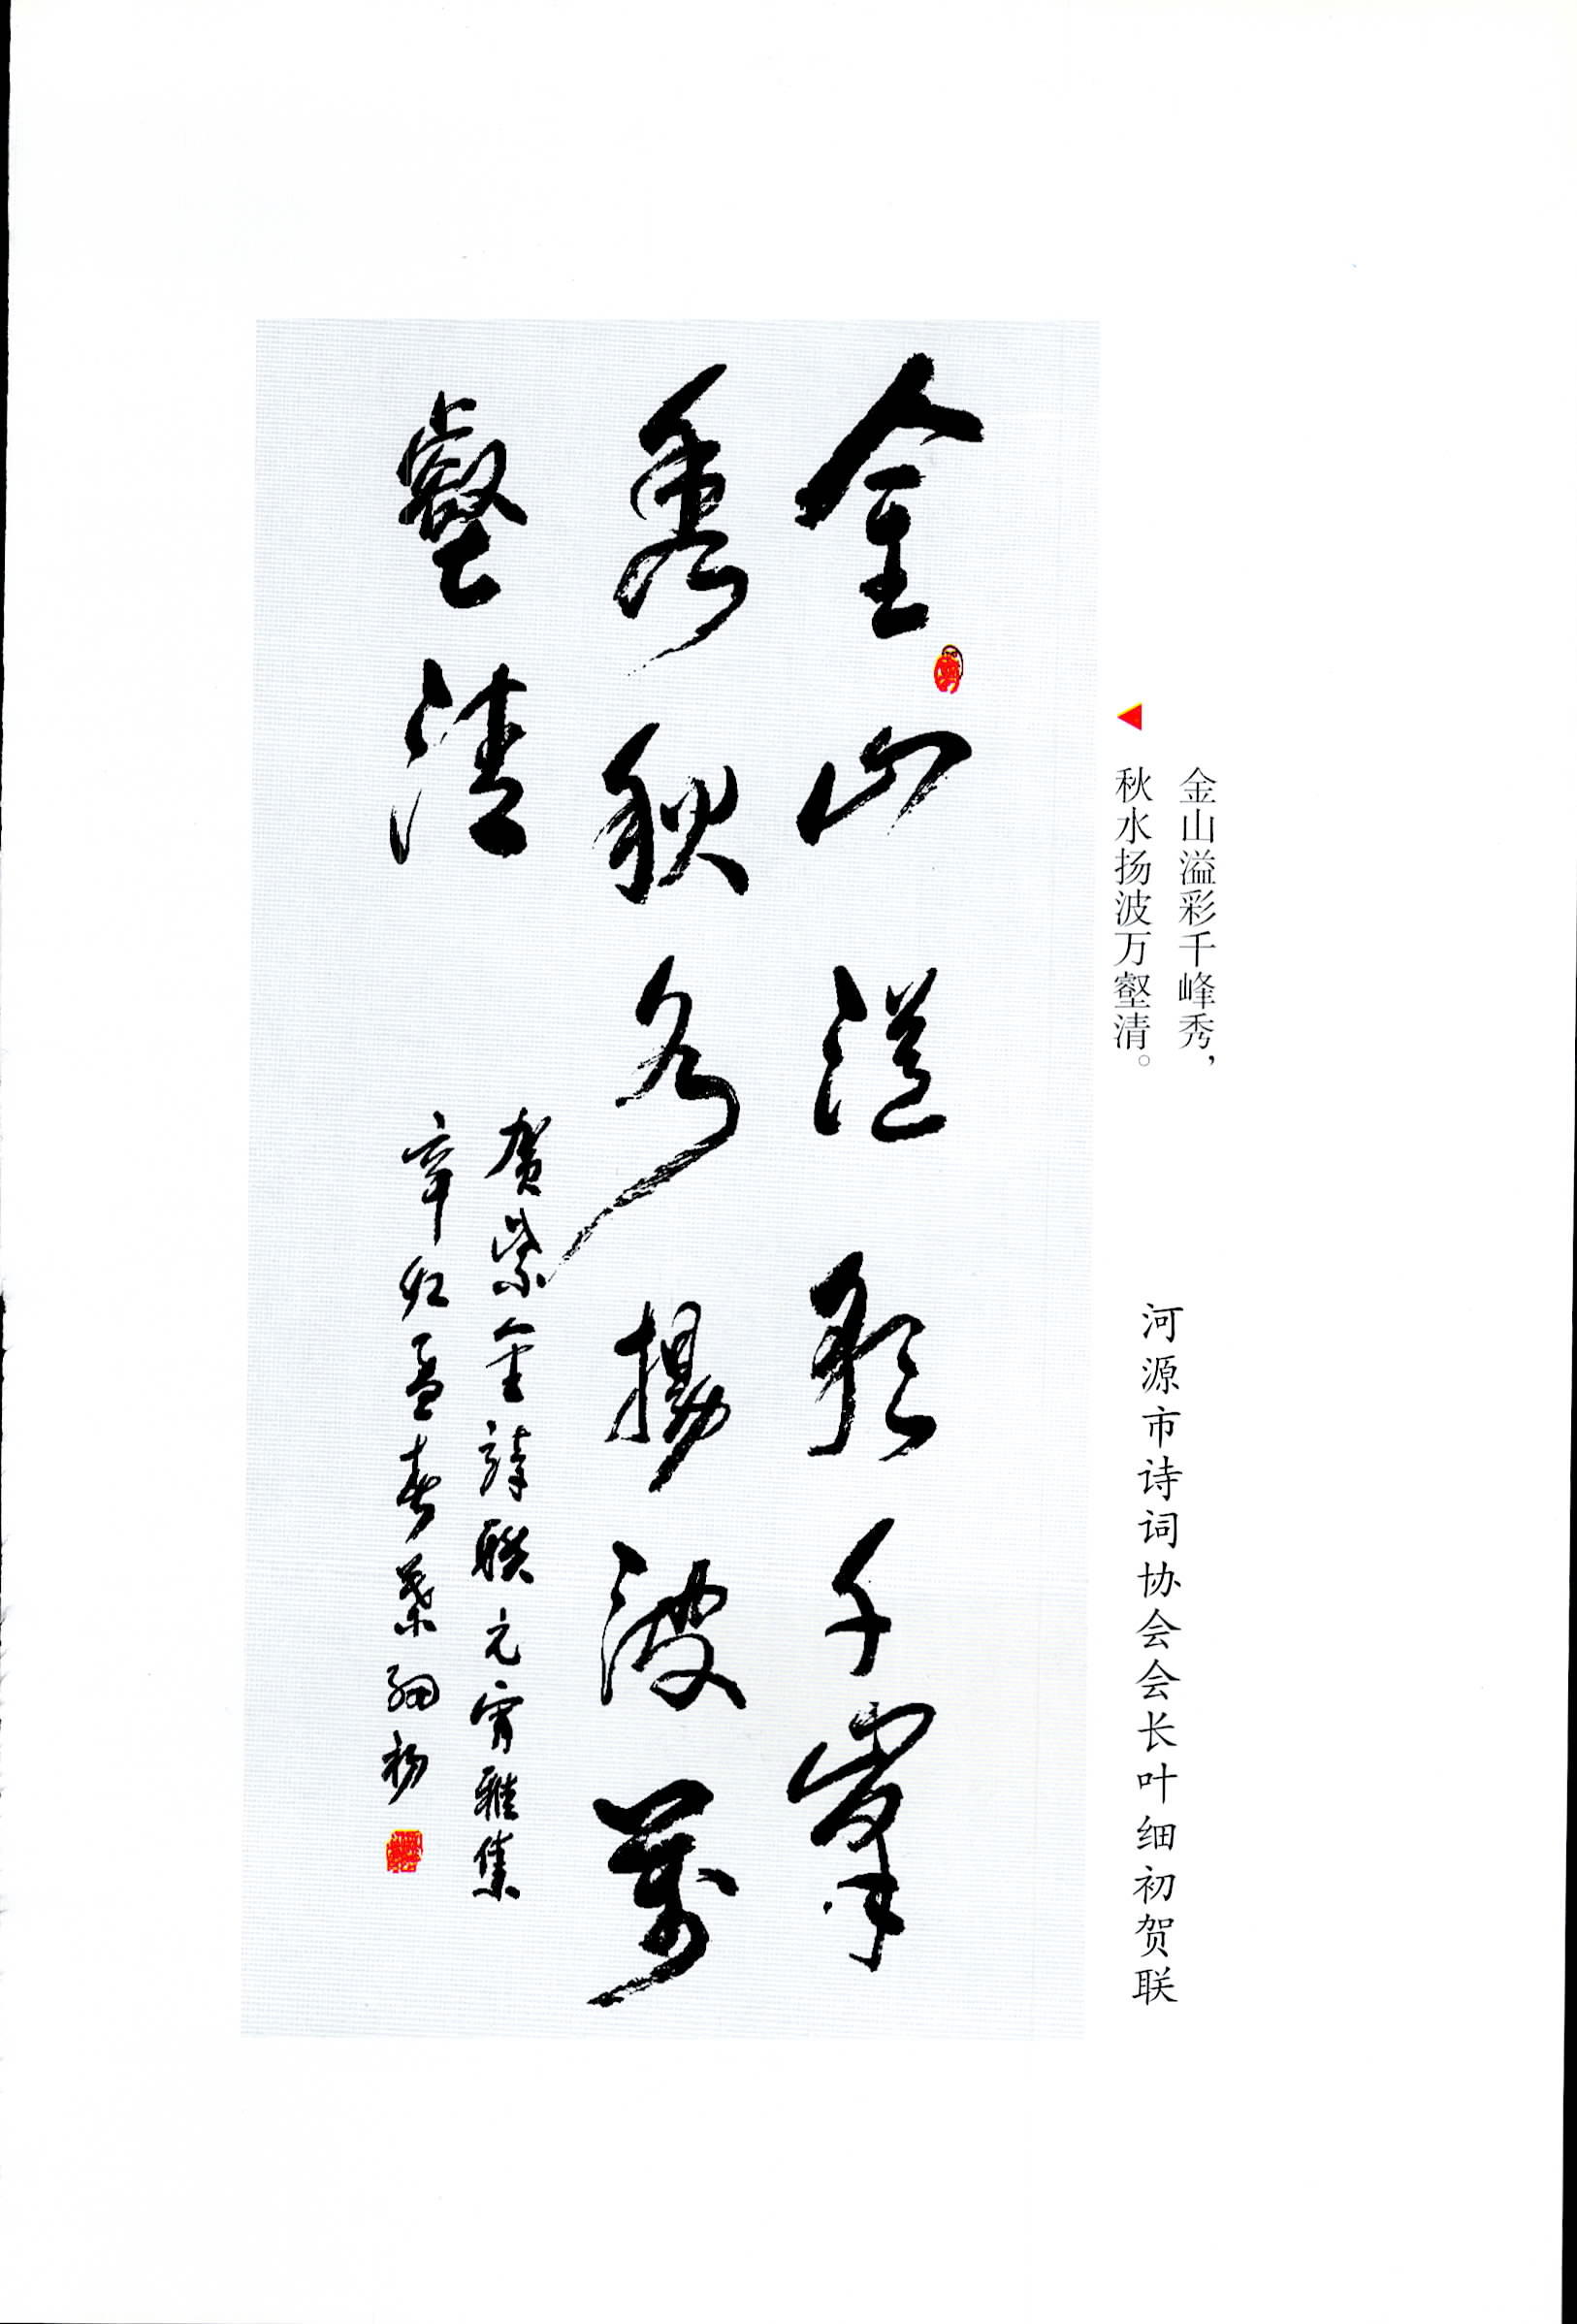 金山溢彩千峰秀，
秋水扬波万壑清。
河源市诗词协会会长叶细初贺联
金山溢彩千峯
秀秋水揚波萬
壑清
贺紫金诗联元宵雅集
辛卯孟春葉细初